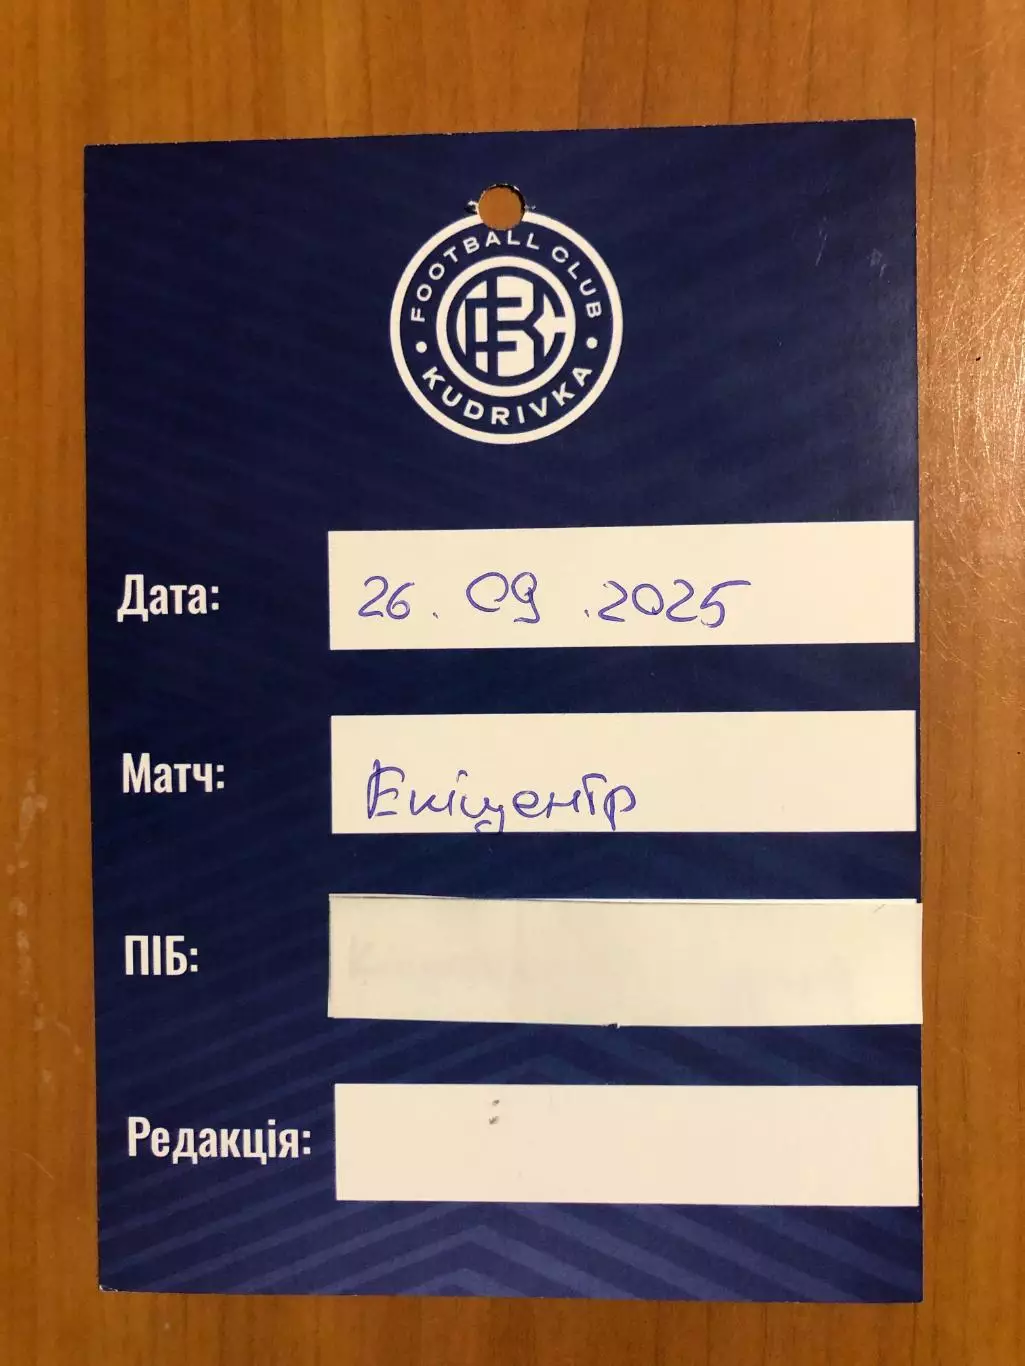 FOOTBALL CLUB
KUDRIVKA
Дата: 26.09.2025
Матч: Екіцентр
ПІБ:
Редакція: